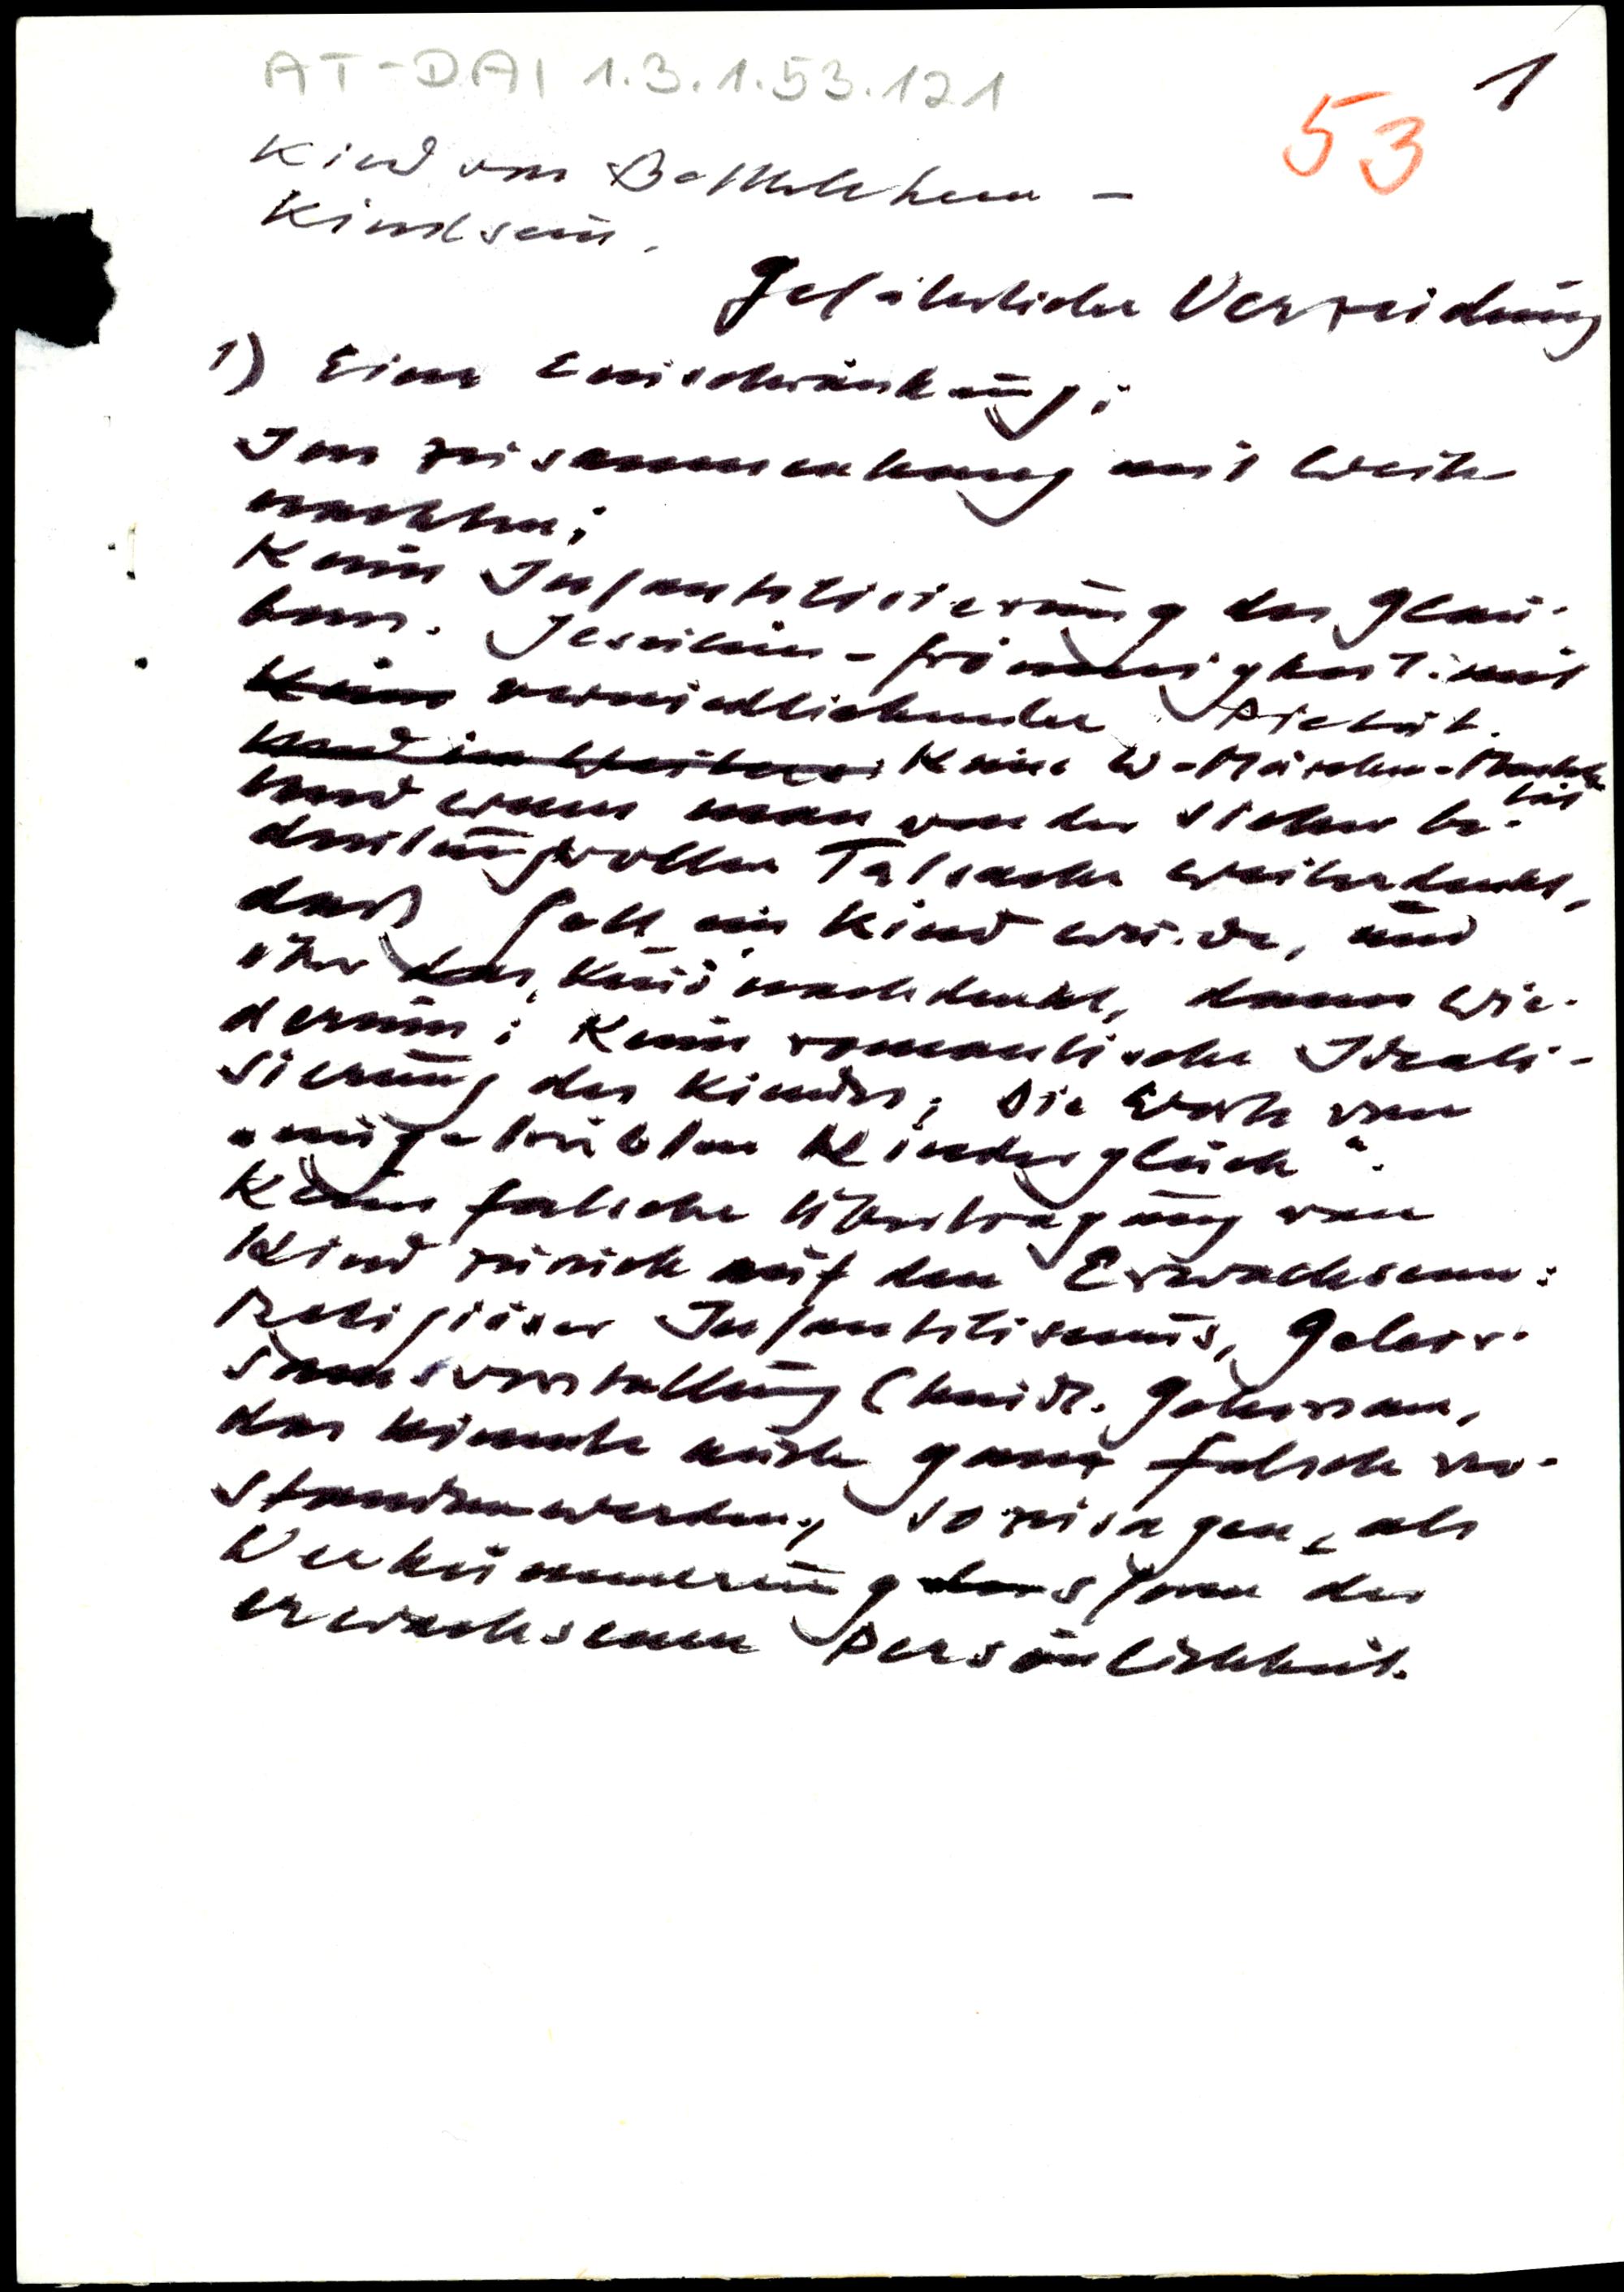 AT-DAI 1.3.1.53.121
1
53
Kind von Bethlehem –
Kindsein.
Gefährliche Verzeichnung
1) Eine Einschränkung:
Im Zusammenhang mit Weih
nachten:
Keine Infantilisierung des Glau-
bens. Jesulein-frömmigkeit mit
Keine verniedlichender Pietät.
Und im Weiteren Keine W-Märchen-
Und wenn man von der sicher be-
deutungsvollen Tatsache weiterdenkt,
daß Gott ein Kind wurde, und
über das Kind nachdenkt, dann wie-
derum: Keine romantische Ideali-
sierung des Kindes; die Worte vom
"ungetrübten Kinderglück".
Keine falsche Übertragung vom
Kind zurück auf den Erwachsenen:
Religiöser Infantilismus, Gehor-
samsvorstellung (kindl. Gehorsam,
das könnte auch ganz falsch ver-
standen werden, sozusagen, als
Verkümmerungsform der
erwachsenen Persönlichkeit.